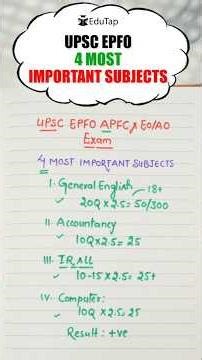 EduTap
UPSC EPFO
4 MOST
IMPORTANT SUBJECTS
UPSC EPFO APFC, EO/AO
Exam
4 MOST IMPORTANT SUBJECTS
I. General English 18+
20Q x 2.5 = 50/300
II. Accountancy
10Q x 2.5 = 25
III. IR & LL
10-15 x 2.5 = 25+
IV. Computer:
10Q x 2.5 = 25
Result: +ve